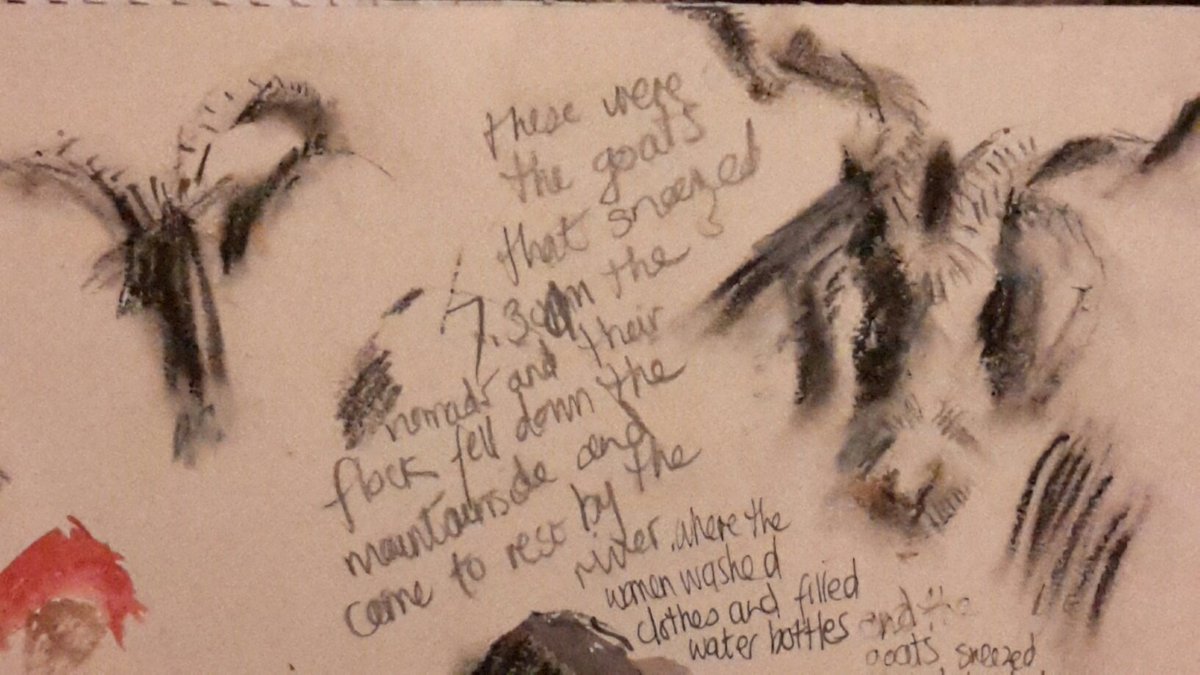 these were
the goats
that sneezed
the
nomads and their
flock fell down the
mountainside and
came to rest by the
river. where the
women washed
clothes and filled
water bottles and the
goats sneezed